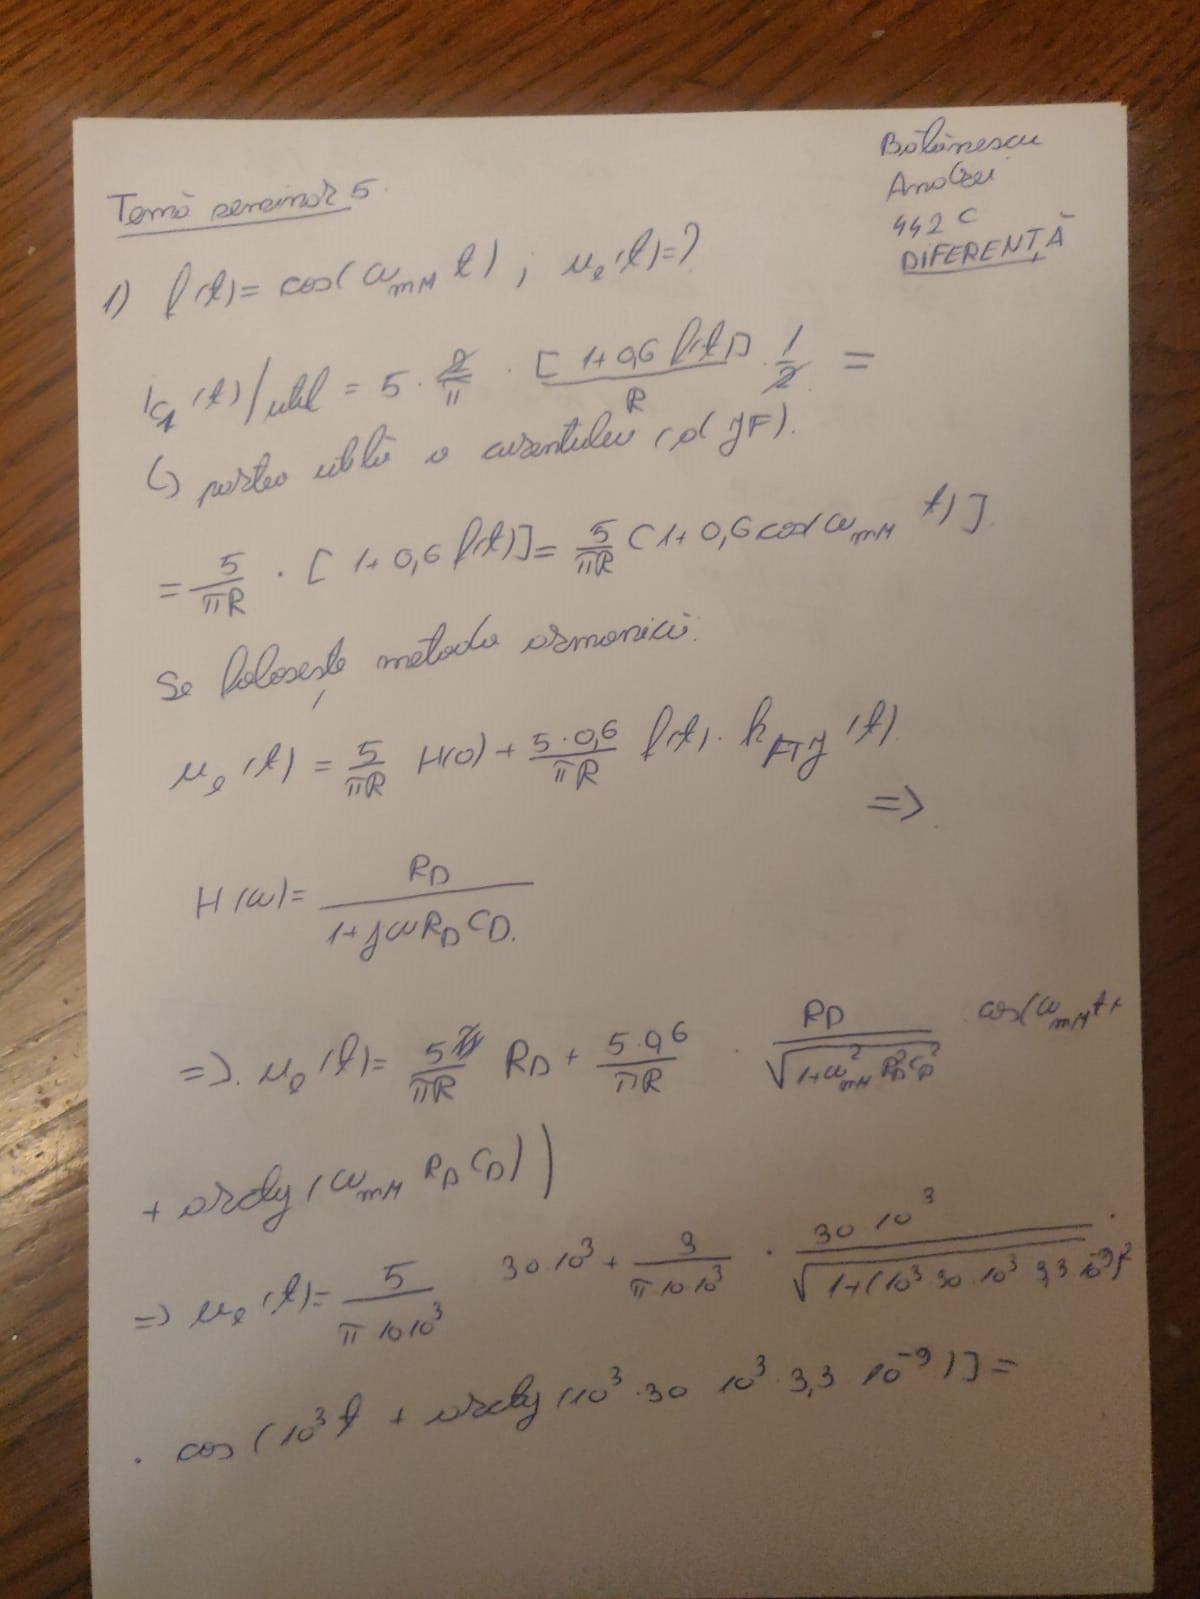 Bătănescu
Andrei
442 C
DIFERENȚĂ
Temă seminar 5.
1) f(t) = cos(ω_mM t) ; u_e(t) = ?
i_c1(t)/util = 5 · 2/π · [1+0,6 f(t)]/R · 1/2 =
↳ partea utilă a curentului (d JF).
= 5/πR · [1+0,6 f(t)] = 5/πR (1+0,6 cos(ω_mM t)].
Se folosește metoda armonică:
u_e(t) = 5/πR H(0) + 5·0,6/πR f(t) · h_FTJ(t).
=>
H(ω) = R_D/(1+jωR_D C_D.
=>. u_e(t) = 5/πR R_D + 5·0,6/πR · R_D/√(1+ω_mM² R_D² C_D²) . cos(ω_mM t+
+ arctg(ω_mM R_D C_D))
=> u_e(t) = 5/(π 10 10³) 30·10³ + 3/(π 10 10³) · 30 10³/√(1+(10³ 30 · 10³ 3,3 10⁻⁹)² ·
· cos(10³ t + arctg(10³ · 30 10³ · 3,3 10⁻⁹)] =